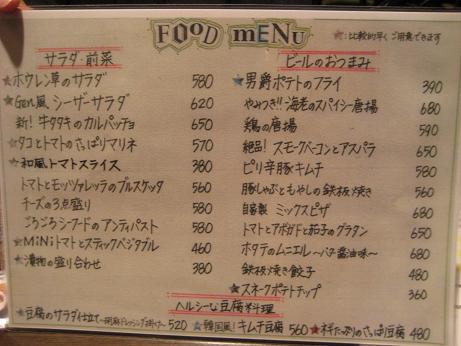 FOOD MENU
★:比較的早くご用意できます
サラダ・前菜
★ホウレン草のサラダ 580
★Gen風シーザーサラダ 620
新!牛タタキのカルパッチョ 650
★タコとトマトのさっぱりマリネ 570
★和風トマトスライス 380
トマトとモッツァレッラのブルスケッタ 560
チーズの3点盛り 580
ごろごろシーフードのアンティパスト 580
★MiNiトマトとスティックベジタブル 460
★漬物の盛り合わせ 380
ビールのおつまみ
★男爵ポテトのフライ 390
やみつき!!海老のスパイシー唐揚 680
鶏の唐揚 590
絶品!スモークベーコンとアスパラ 650
ピリ辛豚キムチ 580
豚しゃぶともやしの鉄板焼き 560
自家製 ミックスピザ 680
トマトとアボガドと茄子のグラタン 650
ホタテのムニエル〜バター醤油味〜 680
鉄板焼き餃子 480
★スネークポテトチップ 360
ヘルシーな豆腐料理
★豆腐のサラダ仕立て〜胡麻ドレッシングお掛け〜 520 ★韓国風!キムチ豆腐 560 ★梓たっぷりのさっぱり豆腐 480